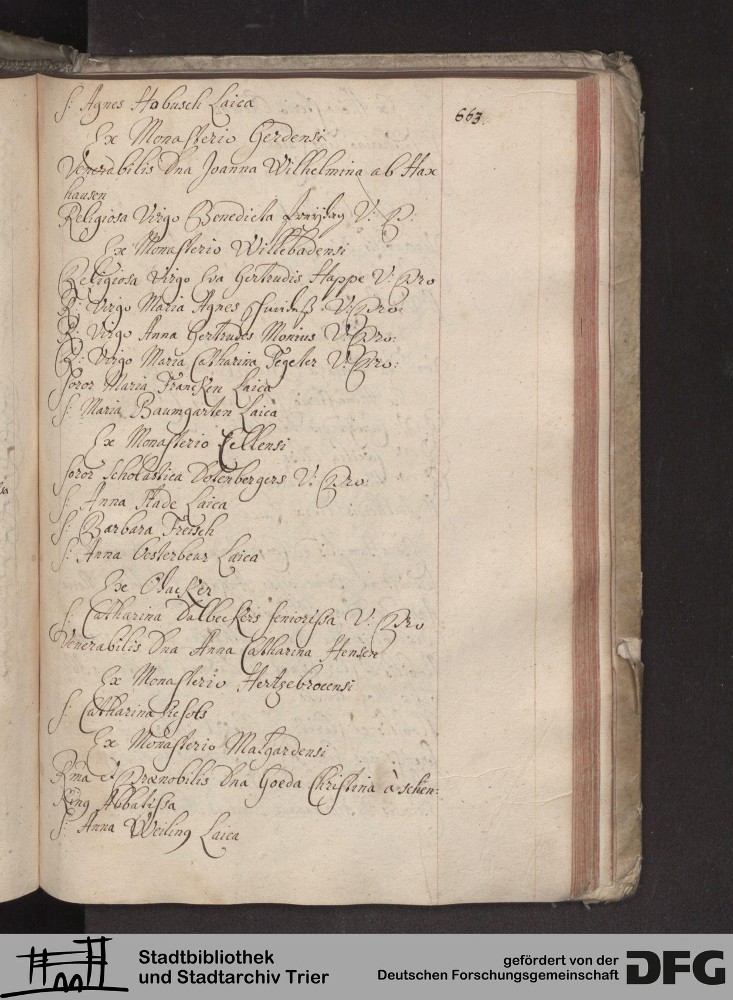 S: Agnes Hobusch Laica
663.
Ex Monasterio Gerdensi
Venerabilis Dna Joanna Wilhelmina ab Hax
hausen
Religiosa Virgo Benedicta V: P:
Ex Monasterio Willebadensi
Religiosa Virgo Eva Gertrudis Happe V: Pro
R: Virgo Maria Agnes V: Pro:
R: Virgo Anna Gertrudes Monius V: Pro:
R: Virgo Maria Catharina Tegeler V: Pro:
Soror Maria Francken Laica
S: Maria Baumgarten Laica
Ex Monasterio Cellensi
Soror Scholastica Dotenbergers V: Pro:
S: Anna Stade Laica
S: Barbara Fretsch
S: Anna Oesterbeur Laica
Ex Olacker
S: Catharina Dalbeckers seniorissa V: Pro
Venerabilis Dna Anna Catharina Hensen
Ex Monasterio Hertzebrocensi
S: Catharina
Ex Monasterio Malgardensi
Rma et Praenobilis Dna Goeda Christina à schen:
King Abbatissa
S: Anna Weiling Laica
Stadtbibliothek
und Stadtarchiv Trier
gefördert von der
Deutschen Forschungsgemeinschaft
DFG